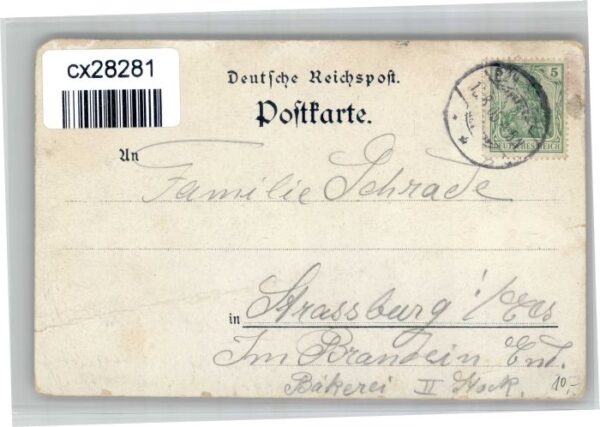 cx28281
Deutsche Reichspost.
Postkarte.
An
Familie Schrade
in Strassburg i/Els
Im
Bäkerei II Stock.
10,-
5
DEUTSCHES REICH